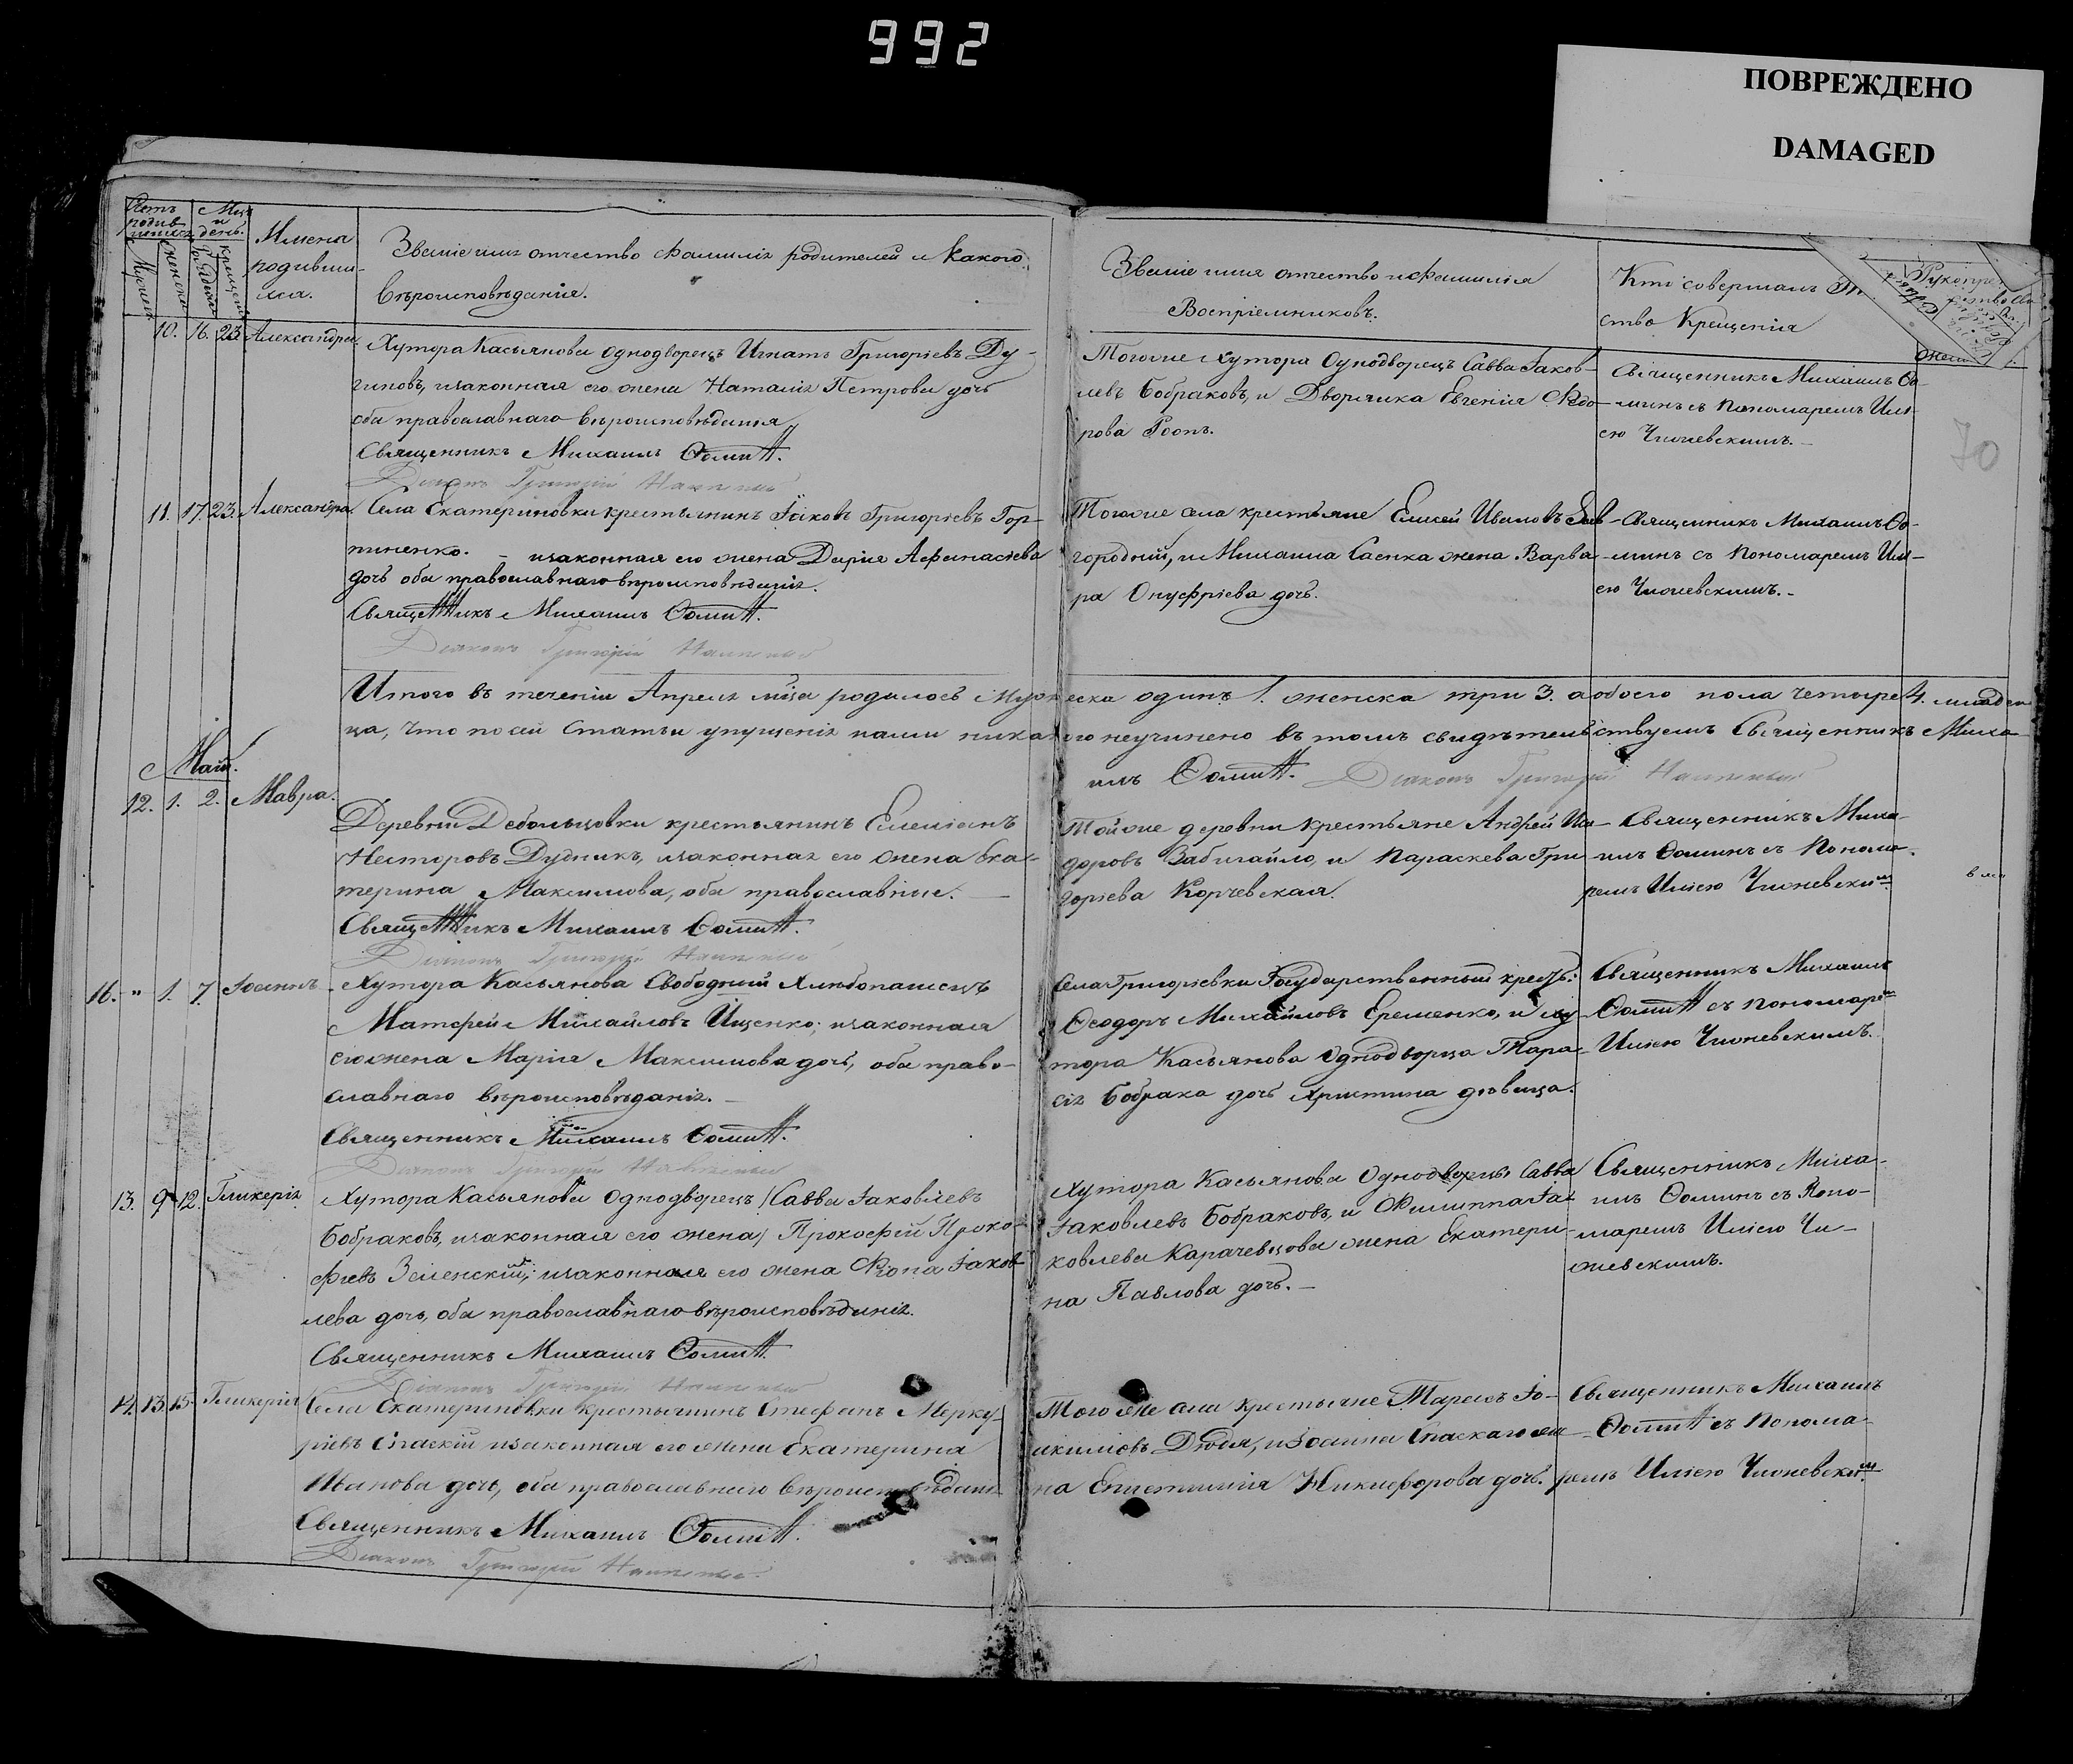 992
ПОВРЕЖДЕНО
DAMAGED
70
Счетъ родившихся
Мужеска
Женска
Мцъ и день.
Рожденія
Крещенія
Имена
родивши-
хся.
Званіе имя отчество фамилія родителей и какого
вѣроисповѣданія.
Званіе имя отчество и фамилія
Воспріемниковъ.
Кто совершалъ
ство Крещенія
10. 16. 23. Александра.
Хутора Касьянова однодворецъ Игнатъ Григорьевъ Ду-
гиновъ, изаконная его жена Наталія Петрова дочь
оба православнаго вѣроисповѣданія
Священникъ Михаилъ Ѳоминъ.
Діаконъ Григорій
Тогоже Хутора Однодворецъ Савва Іаков-
левъ Бобраковъ, и Дворянка Евгенія Ѳедо-
рова Роопъ.
Священникъ Михаилъ Ѳо-
минъ съ Пономаремъ Илі-
ею Чижевскимъ.
11. 17. 23. Александра.
Села Екатериновки крестьянинъ Іаковъ Григорьевъ Гор-
пиненко. – изаконная его жена Дарія Афанасіева
дочь оба православнаго вѣроисповѣданія.
Священникъ Михаилъ Ѳоминъ.
Діаконъ Григорій
Тогоже села крестьяне Елисей Ивановъ Зав-
городній, и Михаила Саенка жена Варва-
ра Онуфріева дочь.
Священникъ Михаилъ Ѳо-
минъ съ Пономаремъ Илі-
ею Чижевскимъ.
Итого въ теченіи Апреля мца родилось Мужеска одинъ 1. женска три 3. а обоего пола четыре 4. младен
ца, что по сей статьи упущенія нами никакого неучинено въ томъ свидѣтельствуемъ Священникъ Миха-
илъ Ѳоминъ. Діаконъ Григорій
Май.
12. 1. 2. Мавра.
Деревни Дебальцовки крестьянинъ Емеліанъ
Несторовъ Дудникъ, изаконная его жена Ека-
терина Максимова, оба православные.
Священникъ Михаилъ Ѳоминъ.
Діаконъ Григорій
Тойже деревни крестьяне Андрей Иси-
доровъ Забигайло, и Параскева Гри-
горіева Корчевская.
Священникъ Миха-
илъ Ѳоминъ съ Понома-
ремъ Иліею Чижевскимъ
16. " 1. 7. Іоаннъ
Хутора Касьянова Свободный Хлѣбопашецъ
Матфей Михайловъ Ищенко; изаконная
его жена Марія Максимова дочь, оба право-
славнаго вѣроисповѣданія.
Священникъ Михаилъ Ѳоминъ.
Діаконъ Григорій
Села Григорьевки Государственный крестьн:
Ѳеодоръ Михайловъ Еременко, и ху-
тора Касьянова Однодворца Тара-
сія Бобрака дочь Христина дѣвица.
Священникъ Михаилъ
Ѳоминъ съ Пономаремъ
Иліею Чижевскимъ.
13. 9. 12. Гликерія
Хутора Касьянова Однодворецъ /Савва Іаковлевъ
Бобраковъ, изаконная его жена/ Прокофій Проко-
фіевъ Зеленскій; изаконная его жена Ѳіона Іаков-
лева дочь, оба православнаго вѣроисповѣданія.
Священникъ Михаилъ Ѳоминъ.
Діаконъ Григорій
Хутора Касьянова Однодворцы Савва
Іаковлевъ Бобраковъ, и Филиппа Іа-
ковлева Карачевцова жена Екатери-
на Павлова дочь.
Священникъ Миха-
илъ Ѳоминъ съ Поно-
маремъ Иліею Чи-
жевскимъ.
14. 13. 15. Гликерія
Села Екатериновки крестьянинъ Стефанъ Мерку-
ріевъ Спаскій изаконная его жена Екатерина
Иванова дочь, оба православнаго вѣроисповѣданія
Священникъ Михаилъ Ѳоминъ.
Діаконъ Григорій
Того же села крестьяне Тарасъ Іо-
акиміевъ Дзюба, и Іоанна Спаскаго же-
на Епистимія Никифорова дочь.
Священникъ Михаилъ
Ѳоминъ съ Понома-
ремъ Иліею Чижевскимъ